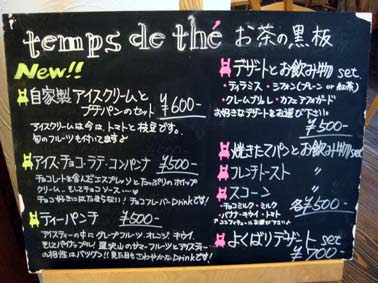 temps de thé お茶の黒板
New!!
自家製アイスクリームと
プチパンのセット ¥600-
アイスクリームは今は、トマトと枝豆です。
旬のフルーツも付いてます♪
アイス・チョコ・ラテ・コンパンナ ¥500-
チョコレートを含んだエスプレッソとたっぷりのホイップ
クリーム、そしてチョコソース…
チョコ好きには たまらない! チョコフレーバーDrinkです!
ティーパンチ ¥500-
アイスティーの中にグレープフルーツ、オレンジ、キウイ、
そしてパイナップル! 夏沢山のサマーフルーツとアイスティー
の相性はバツグン!! 見た目もさわやかなDrinkです!
デザートとお飲み物 set.
・ティラミス ・シフォン(プレーン or 紅茶)
・クレームブリュレ ・カフェアフォガード
お好きなデザートをお選び下さい。
¥500-
焼きたてパンとお飲み物 set
フレンチトースト 〃
スコーン 〃
・チョコミルク・ミルク
・バナナ・キウイ・トマト
各¥500-
よくばりデザート set
¥700-